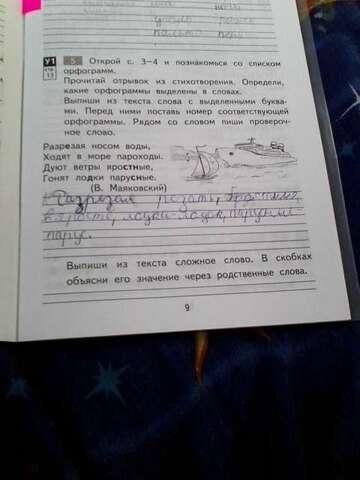 У1
стр.
13
5 Открой с. 3–4 и познакомься со списком
орфограмм.
Прочитай отрывок из стихотворения. Определи,
какие орфограммы выделены в словах.
Выпиши из текста слова с выделенными буква-
ми. Перед ними поставь номер соответствующей
орфограммы. Рядом со словом пиши провероч-
ное слово.
Разрезая носом воды,
Ходят в море пароходы.
Дуют ветры яростные,
Гонят лодки парусные.
(В. Маяковский)
Разрезая резать,
лодки лодок, парусные
парус.
Выпиши из текста сложное слово. В скобках
объясни его значение через родственные слова.
9